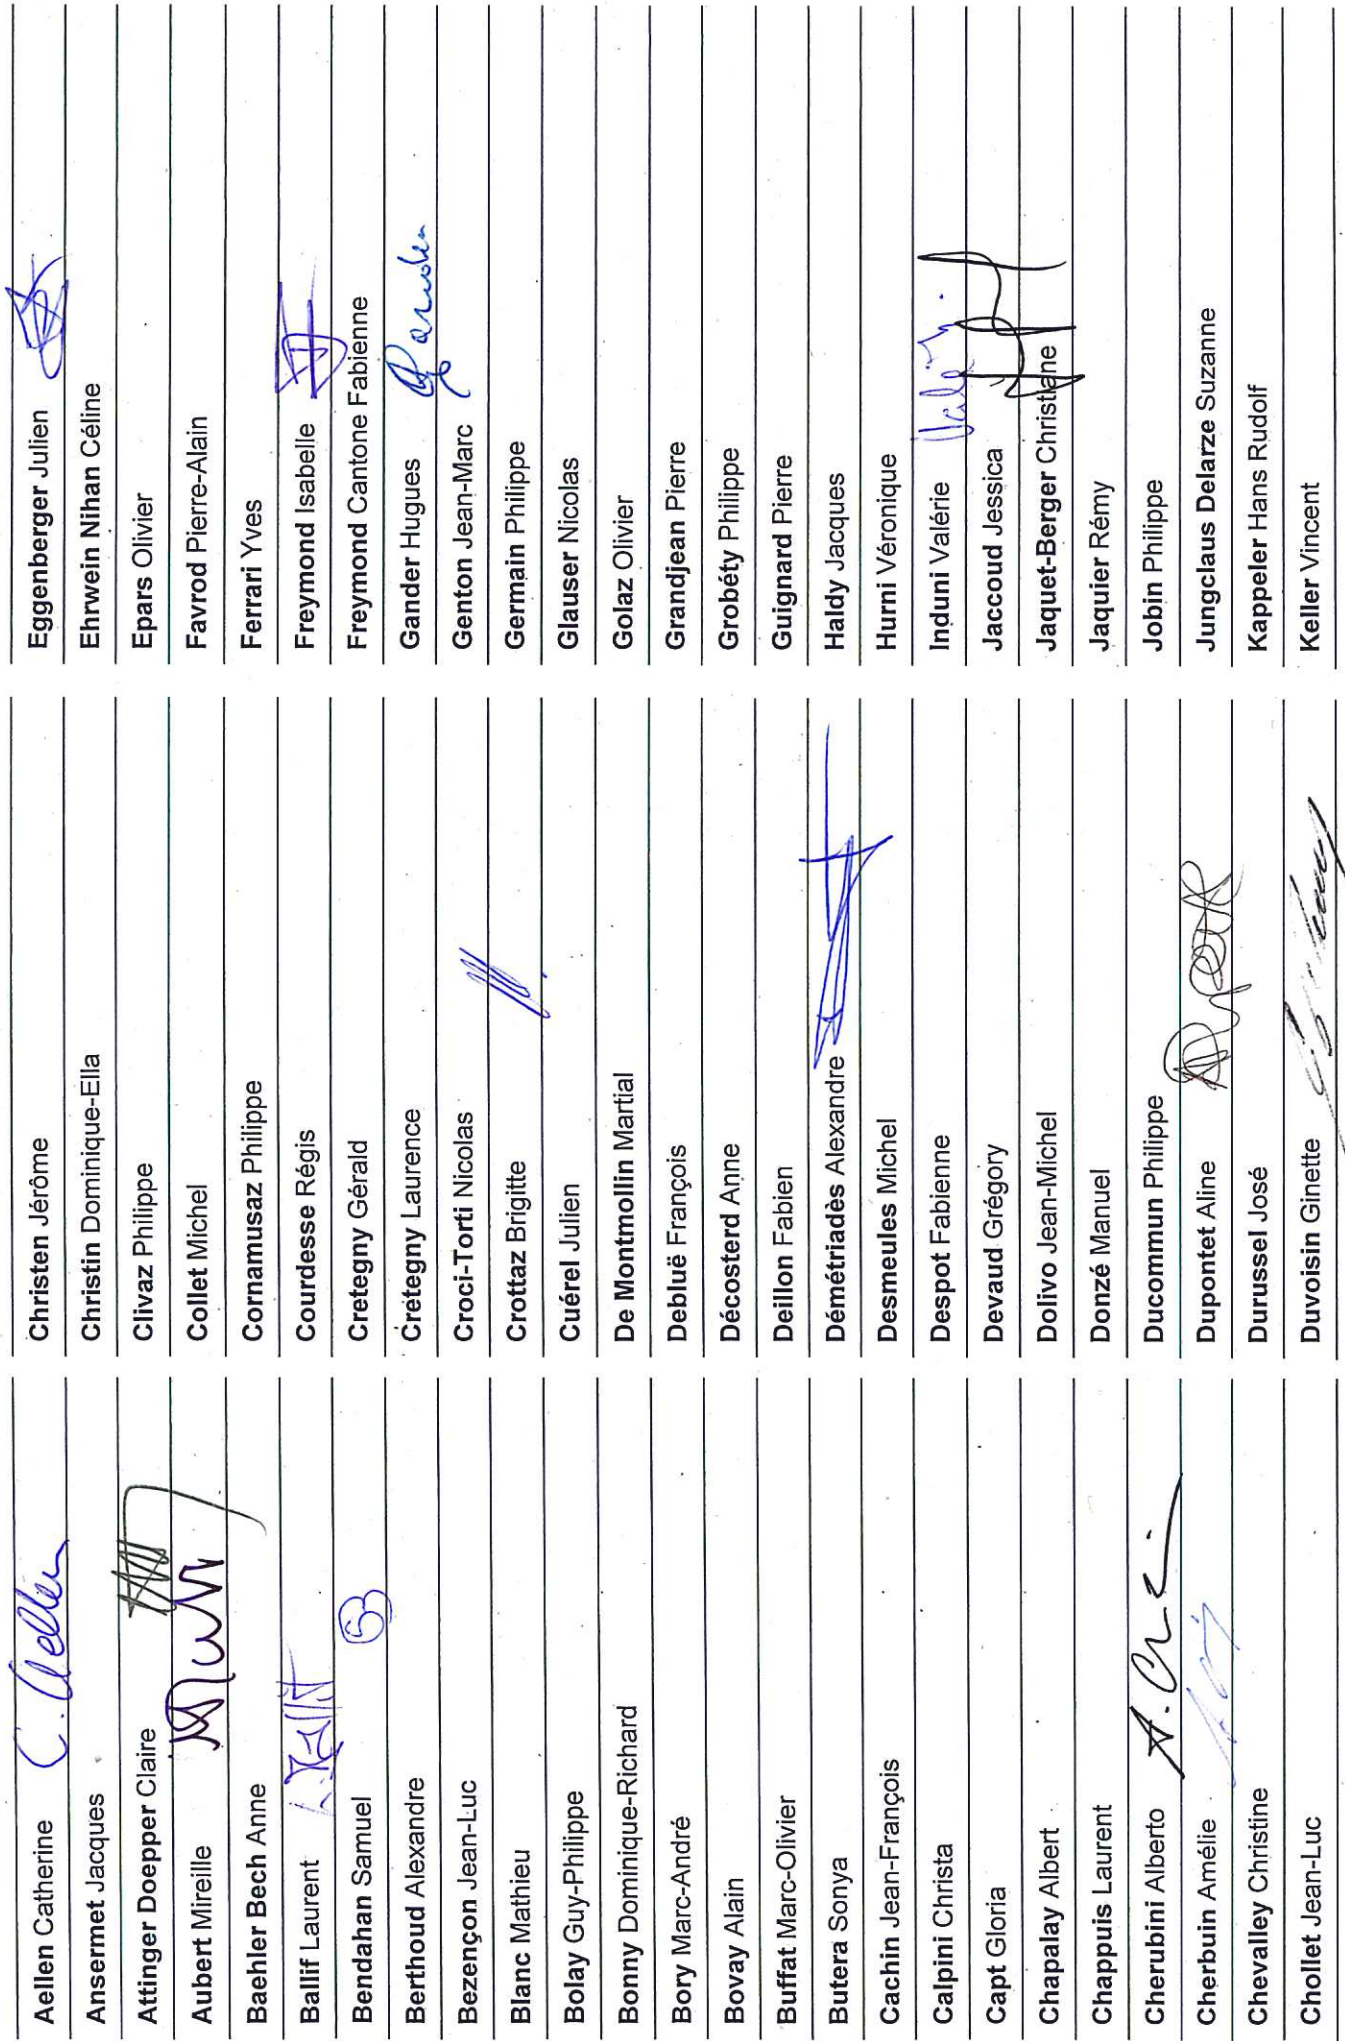 Aellen Catherine C. Aellen
Ansermet Jacques
Attinger Doepper Claire
Aubert Mireille
Baehler Bech Anne
Ballif Laurent L. Ballif
Bendahan Samuel
Berthoud Alexandre
Bezençon Jean-Luc
Blanc Mathieu
Bolay Guy-Philippe
Bonny Dominique-Richard
Bory Marc-André
Bovay Alain
Buffat Marc-Olivier
Butera Sonya
Cachin Jean-François
Calpini Christa
Capt Gloria
Chapalay Albert
Chappuis Laurent
Cherubini Alberto
Cherbuin Amélie
Chevalley Christine
Chollet Jean-Luc
Christen Jérôme
Christin Dominique-Ella
Clivaz Philippe
Collet Michel
Cornamusaz Philippe
Courdesse Régis
Cretegny Gérald
Cretegny Laurence
Croci-Torti Nicolas
Crottaz Brigitte
Cuérel Julien
De Montmollin Martial
Debluë François
Décosterd Anne
Deillon Fabien
Démétriadès Alexandre
Desmeules Michel
Despot Fabienne
Devaud Grégory
Dolivo Jean-Michel
Donzé Manuel
Ducommun Philippe
Dupontet Aline
Durussel José
Duvoisin Ginette
Eggenberger Julien
Ehrwein Nihan Céline
Epars Olivier
Favrod Pierre-Alain
Ferrari Yves
Freymond Isabelle
Freymond Cantone Fabienne
Gander Hugues Gander
Genton Jean-Marc
Germain Philippe
Glauser Nicolas
Golaz Olivier
Grandjean Pierre
Grobéty Philippe
Guignard Pierre
Haldy Jacques
Hurni Véronique
Induni Valérie
Jaccoud Jessica
Jaquet-Berger Christiane
Jaquier Rémy
Jobin Philippe
Jungclaus Delarze Suzanne
Kappeler Hans Rudolf
Keller Vincent